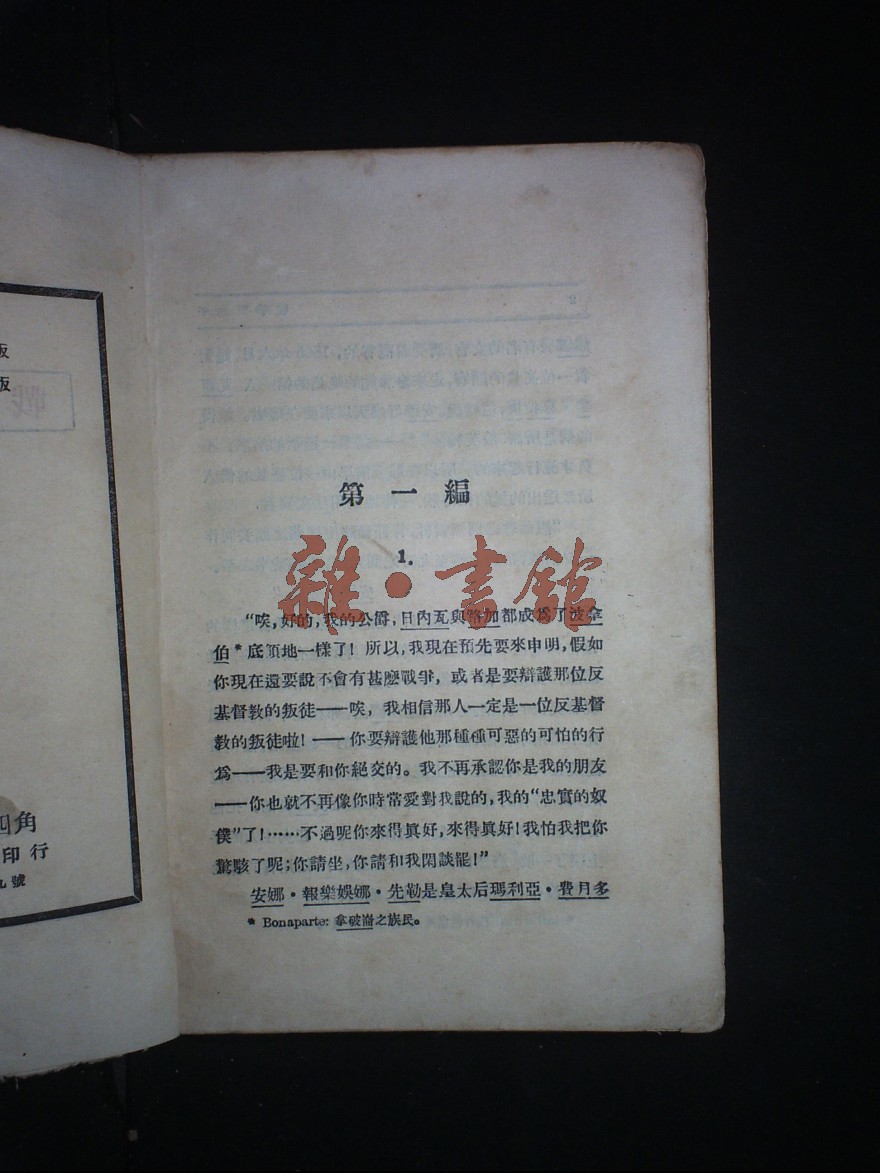 第一編
1.
雜·書館
“唉，好的，我的公爵，日內瓦與路加都成爲了波拿
伯*底領地一樣了！所以，我現在預先要來申明，假如
你現在還要說不會有甚麽戰爭，或者是要辯護那位反
基督教的叛徒——唉，我相信那人一定是一位反基督
教的叛徒啦！——你要辯護他那種種可惡的可怕的行
爲——我是要和你絕交的。我不再承認你是我的朋友
——你也就不再像你時常愛對我說的，我的“忠實的奴
僕”了！……不過呢你來得眞好，來得眞好！我怕我把你
驚駭了呢；你請坐，你請和我閑談罷！”
安娜·報樂娛娜·先勒是皇太后瑪利亞·費月多
* Bonaparte: 拿破崙之族民。
版
版
戰
四角
印行
九號